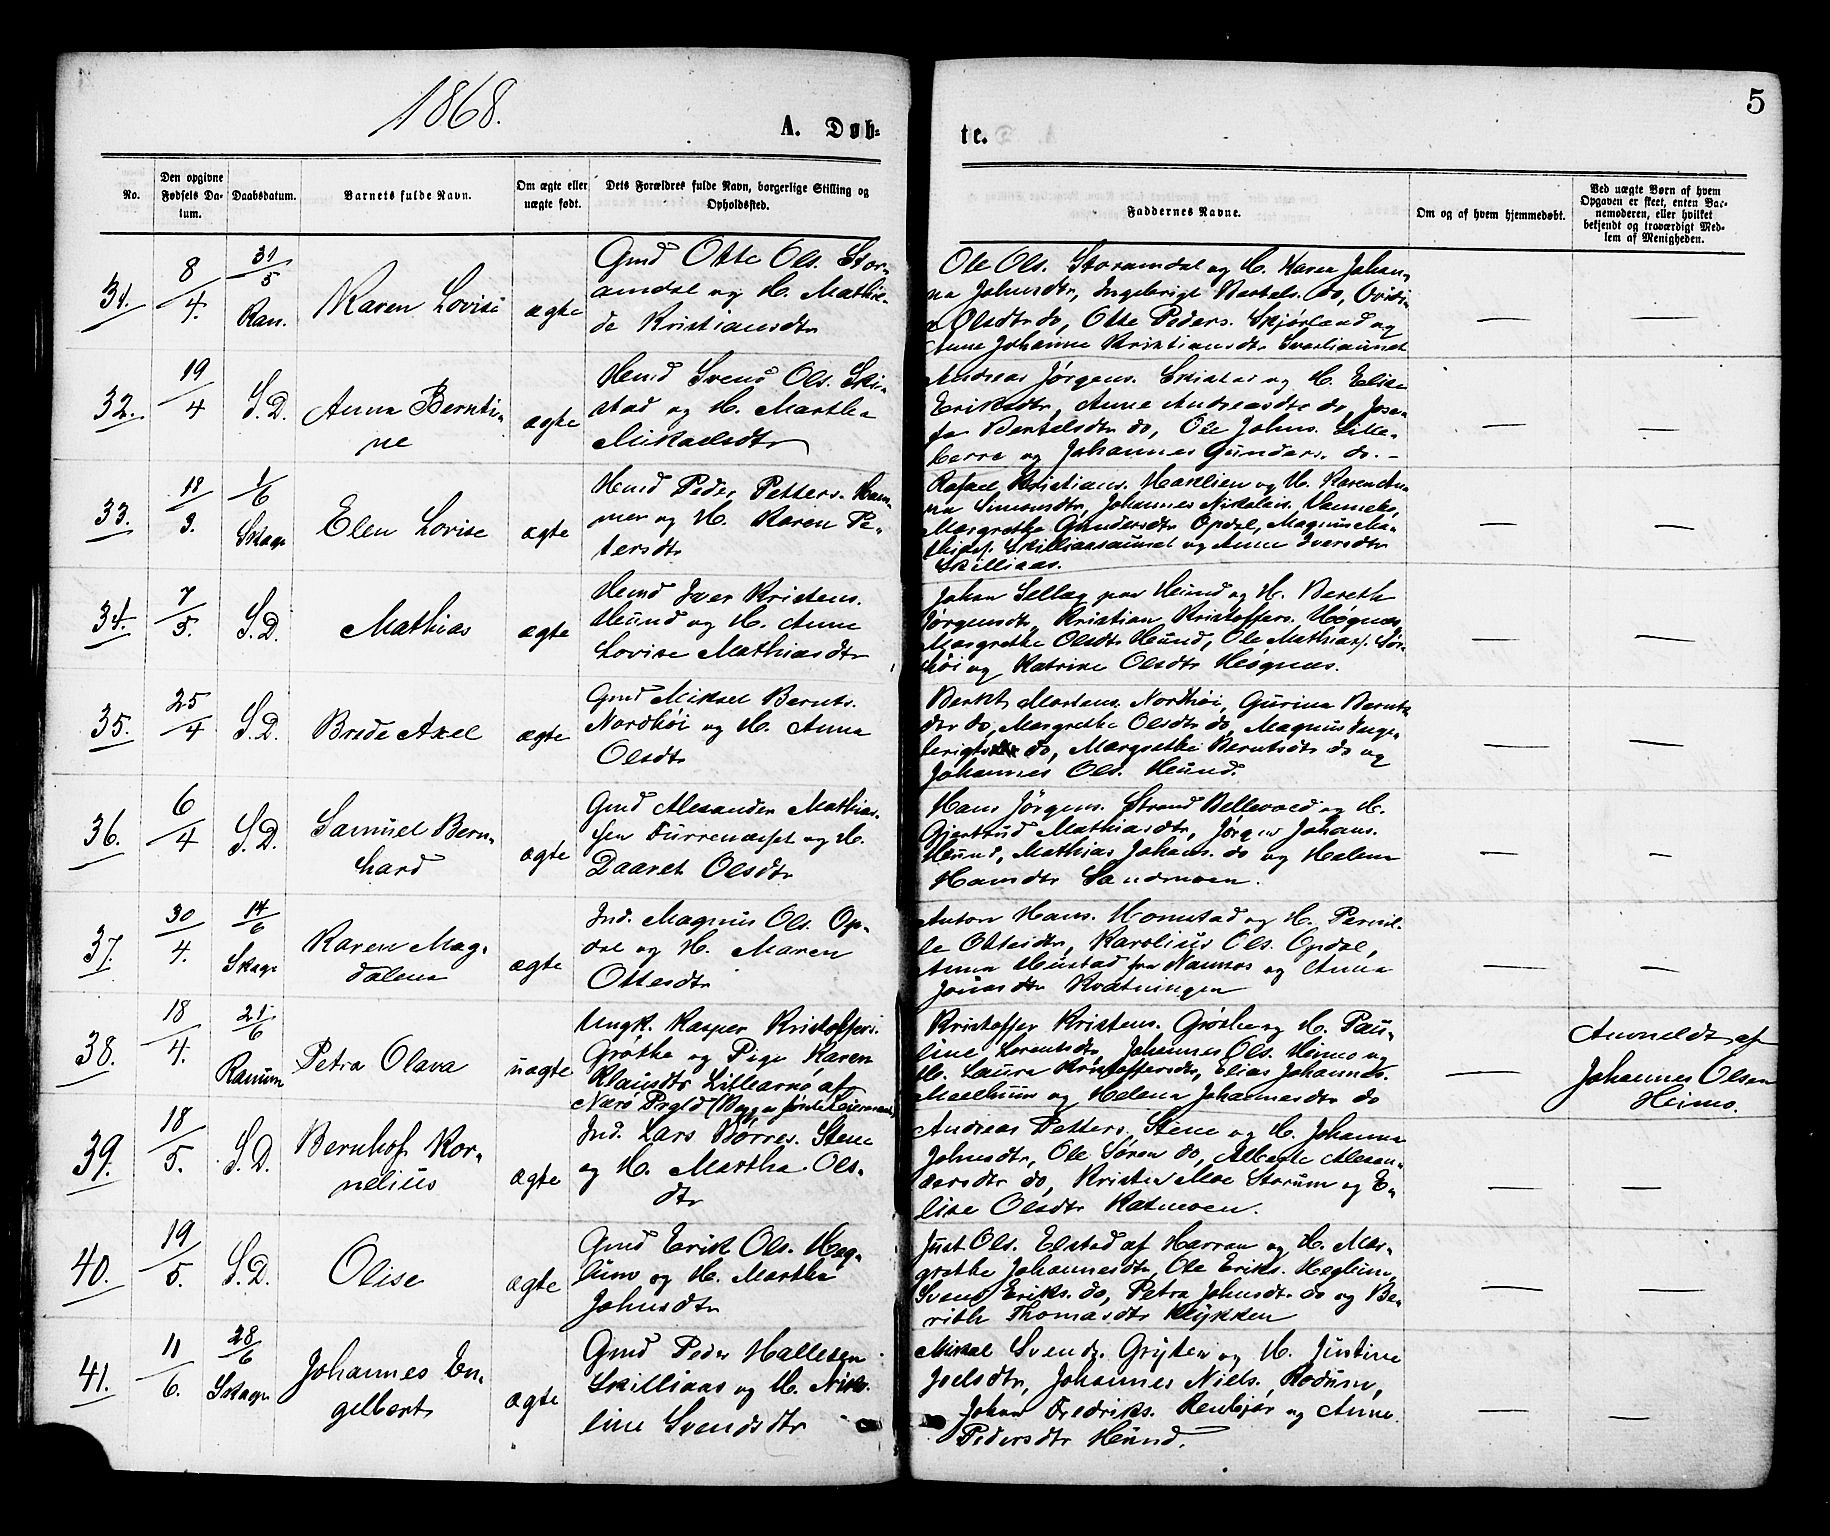 1868.
A. Døb-
te.
5
No.
Den opgivne
Fødsels Da-
tum.
Daabsdatum.
Barnets fulde Navn.
Om ægte eller
uægte født.
Dets Forældres fulde Navn, borgerlige Stilling og
Opholdssted.
Faddernes Navne.
Om og af hvem hjemmedøbt.
Ved uægte Børn af hvem
Opgaven er skeet, enten Bar-
nemoderen, eller hvilket
bekjendt og troværdigt Med-
lem af Menigheden.
31. 8/4. 31/5 Ran. Karen Lovise ægte
Gmd Otte Ols. Stor-
amdal og H. Mathil-
de Kristiansdtr
Ole Ols. Storamdal og H. Karen Johan-
na Johnsdtr, Ingebrigt Bertels. do,
Olsdtr do, Otte Peders. Skjørland og
Anne Johanna Kristiansdtr
— —
32. 19/4 S.D. Anna Bernti-
ne ægte
Hmd Svend Ols. Ski-
stad og H. Martha
Mikaelsdtr
Andreas Jørgens. Skistad og H. Elise
Eriksdtr, Anne Andreasdtr do, Jose-
fa Bertelsdtr do, Ole Johns. Lille-
berre og Johannes Gunders. do. –
— —
33. 18/3. 1/6 Skage Elen Lovise ægte
Hmd Peder Petters. Ham-
mer og H. Karen Pe-
tersdtr
Rafael Kristians. Haxelien og H. Karen An-
na Simonsdtr, Johannes Nikolais.
Margrethe Gundersdtr Opdal, Magnus Ma-
thias. Skilliaasaunet og Anne Iversdtr
Skilliaas.
— —
34. 7/5. S.D. Mathias ægte
Hmd Iver Kristens.
Hünd og H. Anne
Lovise Mathiasdtr
Johan Sellæg paa Hünd og H. Bereth
Jørgensdtr, Kristian Kristoffers. Høgnes,
Margrethe Olsdtr Hünd, Ole Mathias. Sør-
høi og Katrine Olsdtr Høgnes.
— —
35. 25/4 S.D. Brede Axel ægte
Gmd Mikael Bernts.
Nordhøi og H. Anna
Olsdtr
Bernt Mortens. Nordhøi, Gurina Bernts-
dtr do, Margrethe Olsdtr do, Magnus Inge-
brigts do, Margrethe Berntsdtr do og
Johannes Ols. Hünd.
— —
36. 6/4 S.D. Samuel Bern-
hard ægte
Gmd Alexander Mathia-
sen Furrenæsset og H.
Daaret Olsdtr
Hans Jørgens. Strand Bellevold og H.
Gjertrud Mathiasdtr, Jørgen Johans.
Hünd, Mathias Johans. do og Helena
Hansdtr Sandmoen.
— —
37. 30/4. 14/6 Skage Karen Mag-
dalena ægte
Ind. Magnus Ols. Op-
dal og H. Maren
Ottesdtr
Anton Hans. Homstad og H. Pernil-
le Ottesdtr, Karolius Ols. Opdal,
Anna Hustad fra Namsos og Anna
Jonasdtr Kvatningen
— —
38. 18/4. 21/6 Ranum Petra Olava uægte
Ungk. Kasper Kristoffers.
Grøthe og Pige Karen
Klausdtr Lillearnø af
Nærø Prgld (Begges første Leiermaal)
Kristoffer Kristens. Grøthe og H. Pau-
line Lorentsdtr, Johannes Ols. Heimo og
H. Laura Kristoffersdtr, Elias Johannes.
Mælhum og Helena Johannesdtr do
—
Anmeldt af
Johannes Olsen
Heimo.
39. 18/5. S.D. Bernhof Kor-
nelius ægte
Ind. Lars Børres. Stene
og H. Martha Ols-
dtr
Andreas Petters. Stene og H. Johanna
Johnsdtr, Ole Søren do, Alberte Alexan-
dersdtr do, Kristen Moe Storum og E-
lise Olsdtr Ratmoen.
— —
40. 19/5. S.D. Olise ægte
Gmd Erik Ols. Heg-
lum og H. Martha
Johnsdtr
Just Ols. Elstad af Harran og H. Mar-
grethe Johannesdtr, Ole Eriks. Heglum,
Svend Eriks. do, Petra Johnsdtr do og Be-
rith Thomasdtr Klykken
— —
41. 11/6. 28/6 Skage Johannes En-
gelbert ægte
Gmd Peder Hallesen
Skilliaas og H. Niko-
line Svendsdtr
Mikal Svends. Gryten og H. Justine
Joelsdtr, Johannes Niels. Rodum,
Johan Fredriks. Renbjør og Anne
Pedersdtr Hünd.
— —